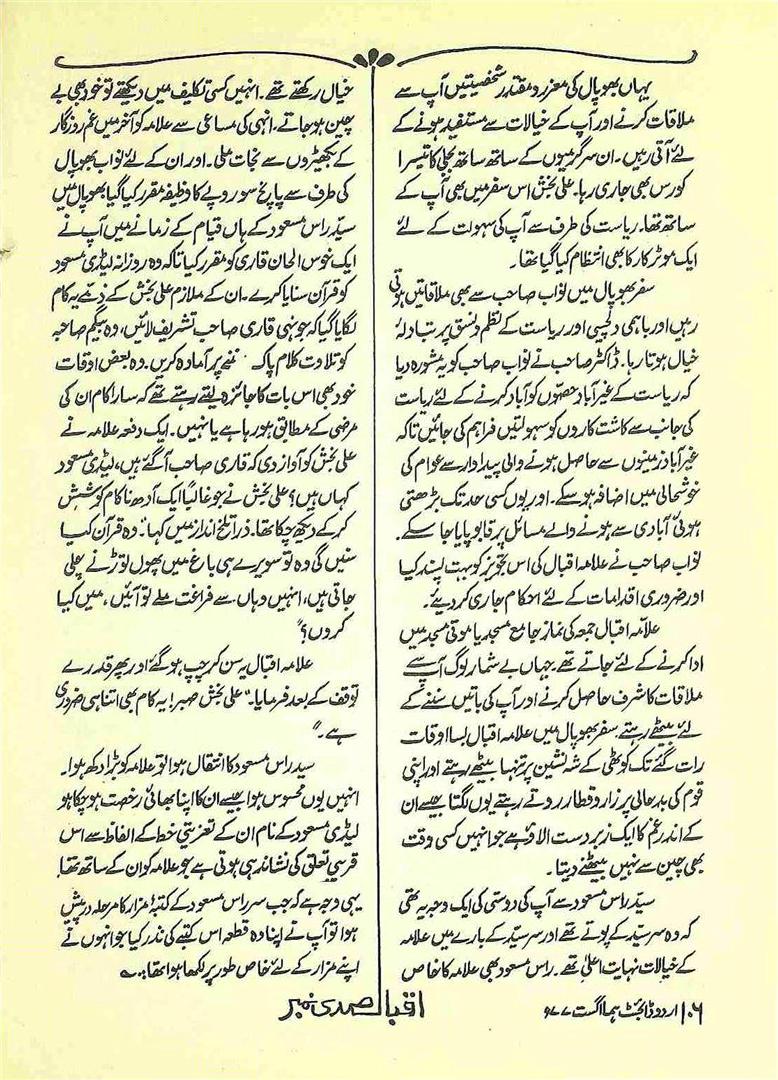 یہاں بھوپال کی معزز و مقتدر شخصیتیں آپ سے
ملاقات کرنے اور آپ کے خیالات سے مستفید ہونے کے
لئے آتی رہیں۔ ان سرگرمیوں کے ساتھ ساتھ بجلی کا تیسرا
کورس بھی جاری رہا۔ علی بخش اس سفر میں بھی آپ کے
ساتھ تھا۔ ریاست کی طرف سے آپ کی سہولت کے لئے
ایک موٹر کار کا بھی انتظام کیا گیا تھا۔
سفر بھوپال میں نواب صاحب سے بھی ملاقاتیں ہوتی
رہیں اور باہمی دلچسپی اور ریاست کے نظم و نسق پر تبادلۂ
خیال ہوتا رہا۔ ڈاکٹر صاحب نے نواب صاحب کو یہ مشورہ دیا
کہ ریاست کے غیر آباد حصّوں کو آباد کرنے کے لئے ریاست
کی جانب سے کاشت کاروں کو سہولتیں فراہم کی جائیں تاکہ
غیر آباد زمینوں سے حاصل ہونے والی پیداوار سے عوام کی
خوشحالی میں اضافہ ہو سکے۔ اور یوں کسی حد تک بڑھتی
ہوئی آبادی سے ہونے والے مسائل پر قابو پایا جا سکے۔
نواب صاحب نے علامہ اقبال کی اس تجویز کو بہت پسند کیا
اور ضروری اقدامات کے لئے احکام جاری کر دیئے۔
علامہ اقبال جمعہ کی نماز جامع مسجد یا موتی مسجد میں
ادا کرنے کے لئے جاتے تھے جہاں بے شمار لوگ آپ سے
ملاقات کا شرف حاصل کرنے اور آپ کی باتیں سننے کے
لئے بیٹھے رہتے۔ سفر بھوپال میں علامہ اقبال بسا اوقات
رات گئے تک کوٹھی کے شہ نشین پر تنہا بیٹھے رہتے اور اپنی
قوم کی بدحالی پر زار و قطار روتے رہتے یوں لگتا جیسے ان
کے اندر غم کا ایک زبردست الاؤ ہے جو انہیں کسی وقت
بھی چین سے نہیں بیٹھنے دیتا۔
سیّد راس مسعود سے آپ کی دوستی کی ایک وجہ یہ تھی
کہ وہ سر سیّد کے پوتے تھے اور سر سیّد کے بارے میں علامہ
کے خیالات نہایت اعلیٰ تھے۔ راس مسعود بھی علامہ کا خاص
خیال رکھتے تھے۔ انہیں کسی تکلیف میں دیکھتے تو خود بھی بے
چین ہو جاتے۔ انہی کی مساعی سے علامہ کو آخر میں غم روزگار
کے بکھیڑوں سے نجات ملی۔ اور ان کے لئے نواب بھوپال
کی طرف سے پانچ سو روپے کا وظیفہ مقرر کیا گیا بھوپال میں
سیّد راس مسعود کے ہاں قیام کے زمانے میں آپ نے
ایک خوس الحان قاری کو مقرر کیا تاکہ وہ روزانہ لیڈی مسعود
کو قرآن سنایا کرے۔ ان کے ملازم علی بخش کے ذمّے یہ کام
لگایا گیا کہ جونہی قاری صاحب تشریف لائیں، وہ بیگم صاحبہ
کو تلاوت کلام پاک سننے پر آمادہ کریں۔ وہ بعض اوقات
خود بھی اس بات کا جائزہ لیتے رہتے تھے کہ سارا کام ان کی
مرضی کے مطابق ہو رہا ہے یا نہیں۔ ایک دفعہ علامہ نے
علی بخش کو آواز دی کہ قاری صاحب آ گئے ہیں، لیڈی مسعود
کہاں ہیں؟ علی بخش نے جو غالباً ایک آدھ ناکام کوشش
کر کے دیکھ چکا تھا۔ ذرا تلخ انداز میں کہا "وہ قرآن کیا
سنیں گی وہ تو سویرے ہی باغ میں پھول توڑنے چلی
جاتی ہیں، انہیں وہاں سے فراغت ملے تو آئیں، میں کیا
کروں؟"
علامہ اقبال یہ سن کر چپ ہو گئے اور پھر قدرے
توقف کے بعد فرمایا۔ "علی بخش صبر! یہ کام بھی اتنا ہی ضروری
ہے۔"
سید راس مسعود کا انتقال ہوا تو علامہ کو بڑا دکھ ہوا۔
انہیں یوں محسوس ہوا جیسے ان کا اپنا بھائی رخصت ہو چکا ہو
لیڈی مسعود کے نام ان کے تعزیتی خط کے الفاظ سے اس
قریبی تعلق کی نشاندہی ہوتی ہے جو علامہ کو ان کے ساتھ تھا
یہی وجہ ہے کہ جب سر راس مسعود کے کتبۂ مزار کا مرحلہ درپیش
ہوا تو آپ نے اپنا وہ قطعہ اس کتبے کی نذر کیا جو انہوں نے
اپنے مزار کے لئے خاص طور پر لکھا ہوا تھا:۔
۱۰۶ اردو ڈائجسٹ ہما اگست ۷۷ء
اقبال صدی نمبر